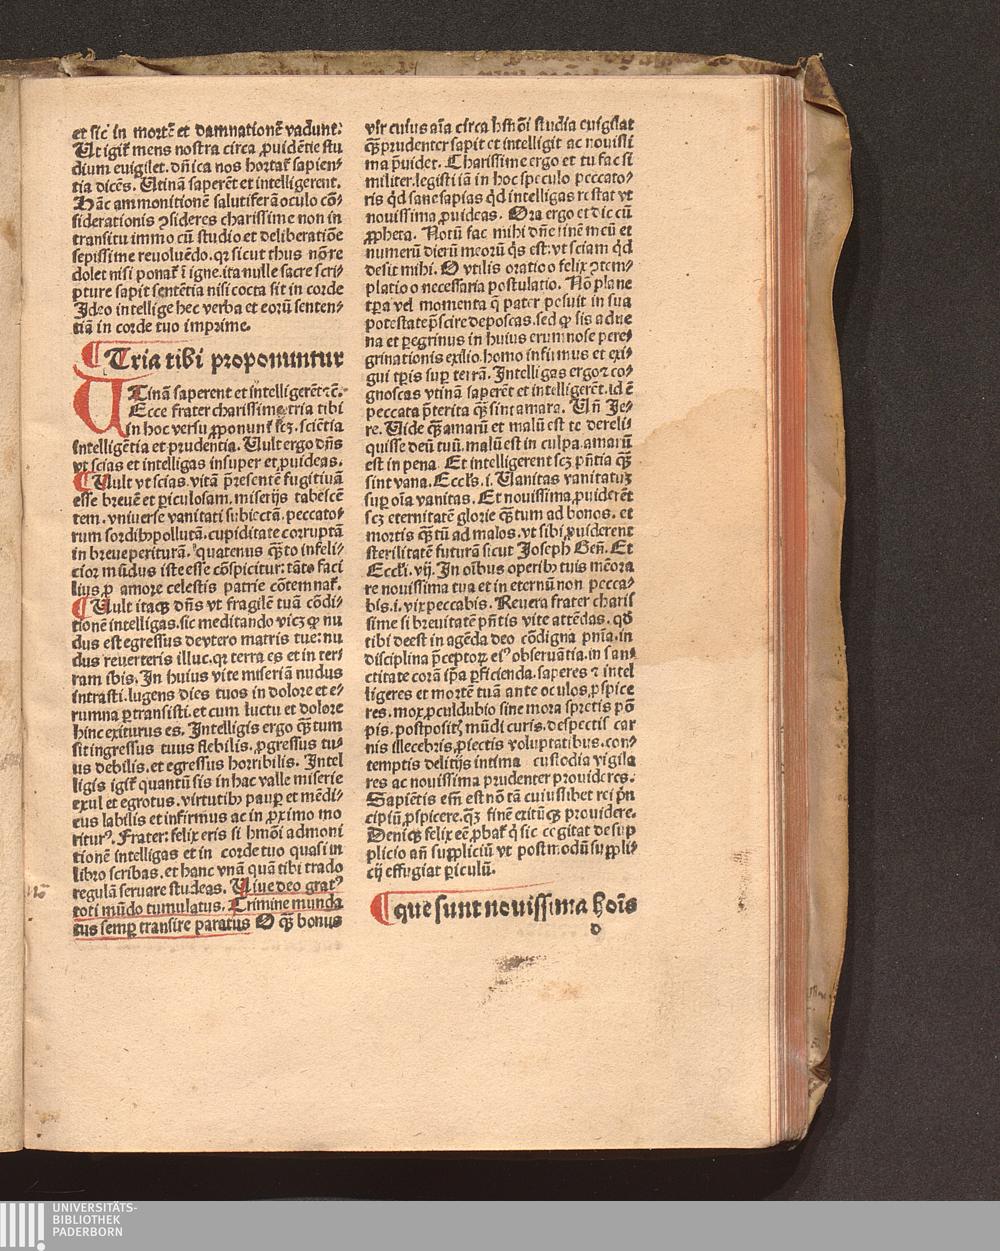 et sic in mortē et damnationē vadunt.
Ut igit᷑ mens nostra circa ꝓuidētie stu
dium euigilet. dn̄ica nos hortat᷑ sapien-
tia dicēs. Utinā saperēt et intelligerent.
Hāc ammonitionē salutiferā oculo cō-
siderationis ꝯsideres charissime non in
transitu immo cū studio et deliberatiōe
sepissime reuoluēdo. qꝛ sicut thus nō re
dolet nisi ponat᷑ ī igne. ita nulle sacre scri-
pture sapit sentētia nisi cocta sit in corde
Ideo intellige hec verba et eorū senten-
tiā in corde tuo imprime.
¶ Tria tibi proponuntur
UTinā saperent et intelligerēt ⁊c̄.
Ecce frater charissime tria tibi
in hoc versu ꝓponunt᷑ scꝫ. sciētia
intelligētia et prudentia. Uult ergo dn̄s
vt scias et intelligas insuper et ꝓuideas.
¶ Uult vt scias. vitā p̄sentē fugitiuā
esse breuē et ꝑiculosam. miserijs tabescē
tem. vniuerse vanitati subiectā. peccato-
rum sordibꝫ pollutā. cupiditate corruptā
in breue periturā. quatenus quāto infeli-
cior mūdus iste esse cōspicitur: tāto faci
lius ꝓ amore celestis patrie cōtemnat᷑.
¶ Uult itaqꝫ dn̄s vt fragilē tuā cōdi-
tionē intelligas. sic meditando vicꝫ ꝙ nu
dus est egressus de vtero matris tue: nu
dus reuerteris illuc. qꝛ terra es et in ter-
ram ibis. In huius vite miseriā nudus
intrasti. lugens dies tuos in dolore et e-
rumna ꝑtransisti. et cum luctu et dolore
hinc exiturus es. Intelligis ergo quātum
sit ingressus tuus flebilis. ꝓgressus tu-
us debilis. et egressus horribilis. Intel
ligis igit᷑ quantū sis in hac valle miserie
exul et egrotus. virtutibꝫ pauꝑ et mēdi-
cus labilis et infirmus ac in ꝓximo mo
riturꝰ. Frater: felix eris si hmōi admoni
tionē intelligas et in corde tuo quasi in
libro scribas. et hanc vnā quā tibi trado
regulā seruare studeas. Uiue deo gratꝰ
toti mūdo tumulatus. Crimine munda
tus semꝑ transire paratus O quā bonus
vir cuius aīa circa hmōi studia euigilat
quā prudenter sapit et intelligit ac nouissi
ma p̄uidet. Charissime ergo et tu fac si
militer. legisti iā in hoc speculo peccato-
ris qd̄ sane sapias qd̄ intelligas restat vt
nouissima ꝓuideas. Ora ergo et dic cū
ꝓpheta. Notū fac mihi dn̄e finē meū et
numerū dierū meorū qs̄ est: vt sciam qd̄
desit mihi. O vtilis oratio o felix ꝯtem-
platio o necessaria postulatio. Nō plane
tꝑa vel momenta q̄ pater posuit in sua
potestate p̄scire deposcas. sed ꝙ sis adue
na et ꝑegrinus in huius erumnose pere-
grinationis exilio. homo infirmus et exi-
gui tꝑis suꝑ terrā. Intelligas ergo ⁊ co-
gnoscas vtinā saperēt et intelligerēt. id ē
peccata p̄terita quā sint amara. Un̄ Je-
re. Uide quā amarū et malū est te dereli-
quisse deū tuū. malū est in culpa. amarū
est in pena. Et intelligerent scꝫ p̄ntia quā
sint vana. Eccls. i. Uanitas vanitatuꝫ
suꝑ oīa vanitas. Et nouissima ꝓuiderēt
scꝫ eternitatē glorie quātum ad bonos. et
mortis quātū ad malos. vt sibi ꝓuiderent
sterilitatē futurā sicut Joseph Gen̄. Et
Eccli. vij. In oībus operibꝫ tuis memora
re nouissima tua et in eternū non pecca-
bis. i. vix peccabis. Reuera frater charis
sime si breuitatē p̄ntis vite attēdas. qd̄
tibi deest in agēda deo cōdigna pn̄ia. in
disciplina p̄ceptoꝝ eiꝰ obseruātia. in san-
ctitate corā ip̄a ꝑficienda. saperes ⁊ intel
ligeres et mortē tuā ante oculos. ꝓspice
res. mox ꝓculdubio sine mora spretis pō
pis. postpositꝭ mūdi curis. despectis car
nis illecebris ꝓiectis voluptatibus. con-
temptis delitijs intima custodia vigila
res ac nouissima prudenter prouideres.
Sapiētis em̄ est nō tā cuiuslibet rei prin
cipiū ꝓspicere. quā finē exitūqꝫ prouidere.
Deniqꝫ felix eē ꝓbat᷑ q̇ sic cogitat de sup
plicio an̄ suppliciū vt postmodū suppli-
cij effugiat ꝑiculū.
¶ que sunt nouissima hoīs
d
UNIVERSITÄTS-
BIBLIOTHEK
PADERBORN